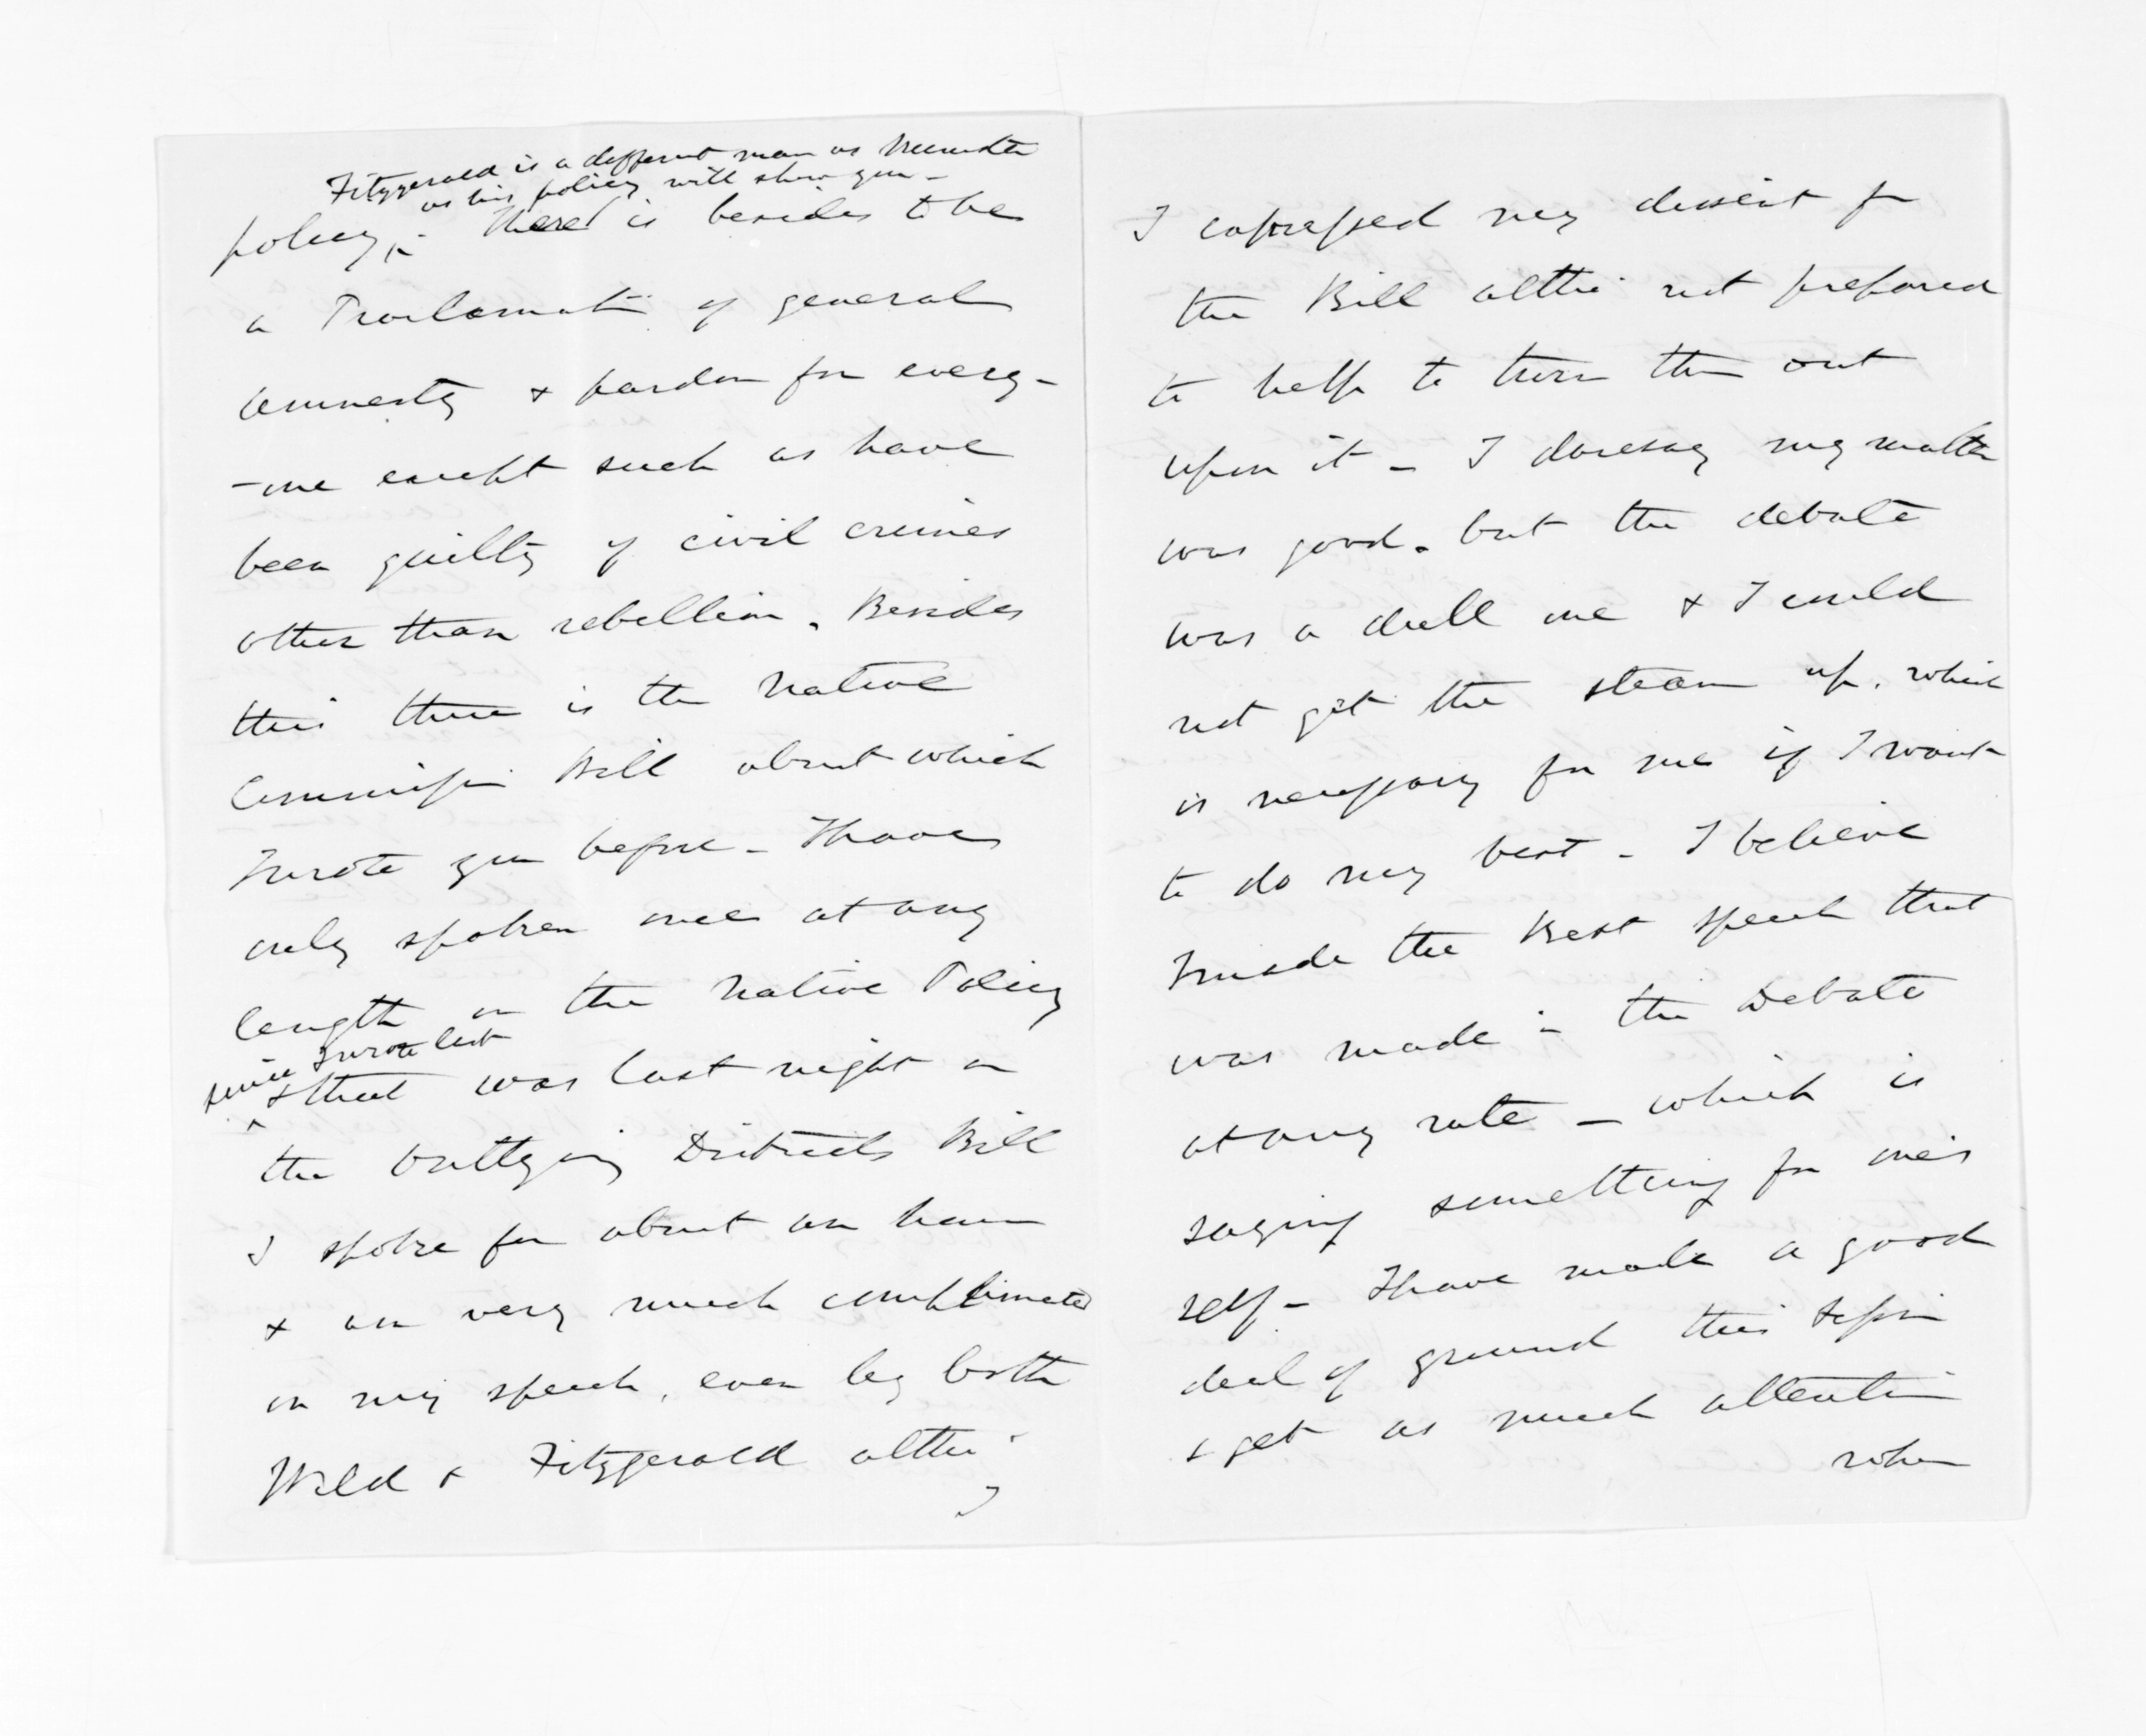 Fitzgerald is a different man as Minister
as his policy will show you -
policy, - There is besides to be
a Proclamatn of general
amnesty & pardon for every-
-one except such as have
been guilty of civil crimes
other than rebellion. Besides
this there is the Native
Commission Bill about which
I wrote you before - I have
only spoken once at any
length on the Native Policy
since I wrote last
& that was last night on
the Outlying Districts Bill
I spoke for about an hour
& am very much complimented
on my speech, even by both
Weld & Fitzgerald altho'
I
I expressed my dissent fm
the Bill altho' not prepared
to help to turn thm out
upon it - I daresay my matter
was good. but the debate
was a dull one & I could
not get the steam up. which
is necessary for me if I want
to do my best - I believe
I made the Best speech that
was made in the Debate
at any rate - which is
saying something for one's
self - I have made a good
deal of ground this Session
& get as much attention
when